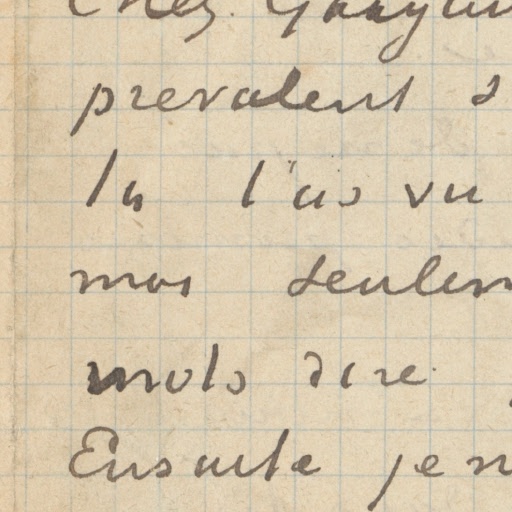 prevalent s
tu l'as vu
moi seulem
mots dire.
Ensuite je n